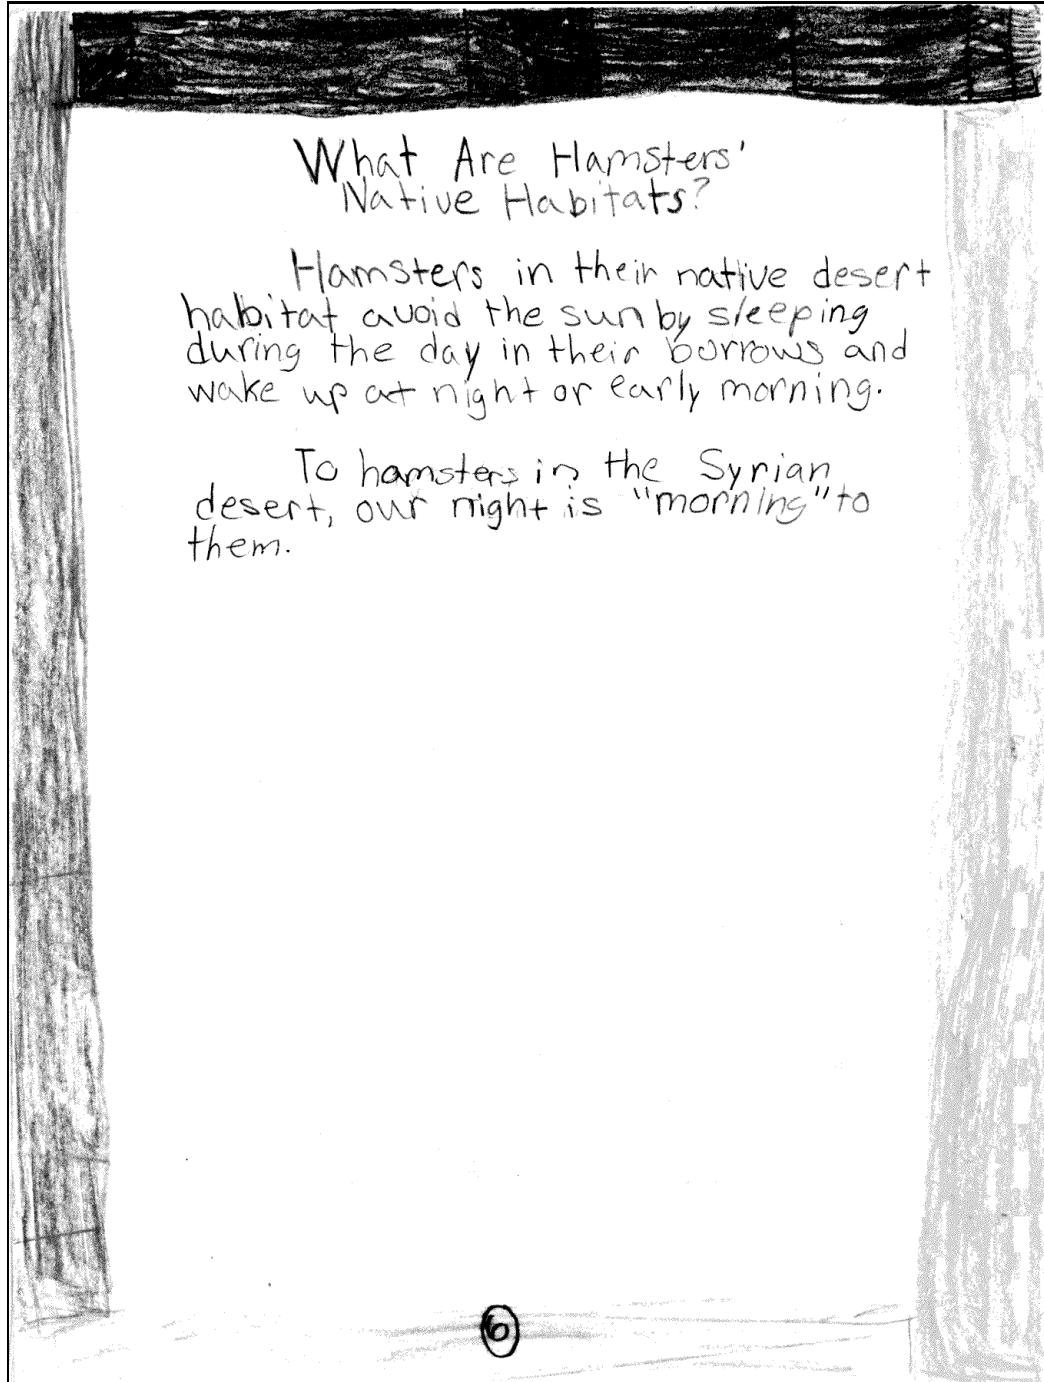 What Are Hamsters'
Native Habitats?
Hamsters in their native desert
habitat avoid the sun by sleeping
during the day in their burrows and
wake up at night or early morning.
To hamsters in the Syrian
desert, our night is "morning" to
them.
6